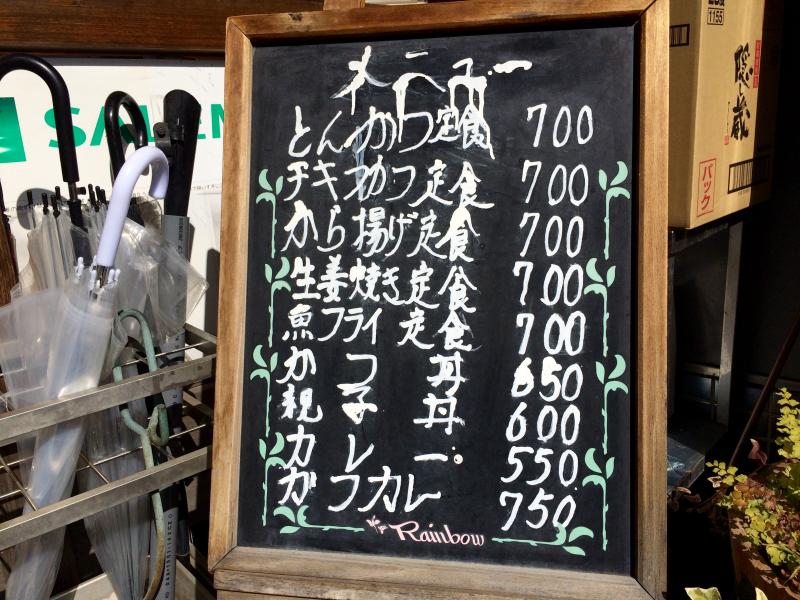 メニュー
とんかつ定食 700
チキカツ定食 700
から揚げ定食 700
生姜焼き定食 700
魚フライ定食 700
かつ丼 650
親子丼 600
カレー 550
かつカレー 750
Rainbow
1155
隠し蔵
パック